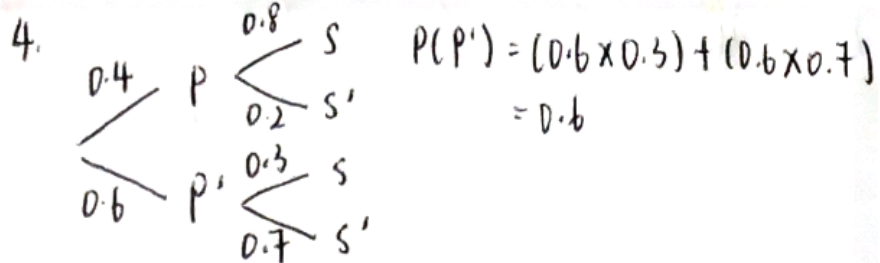 4.
0.8 S
0.4 P
0.2 S'
0.6 P' 0.3 S
0.7 S'
P(P') = (0.6 x 0.3) + (0.6 x 0.7)
= 0.6